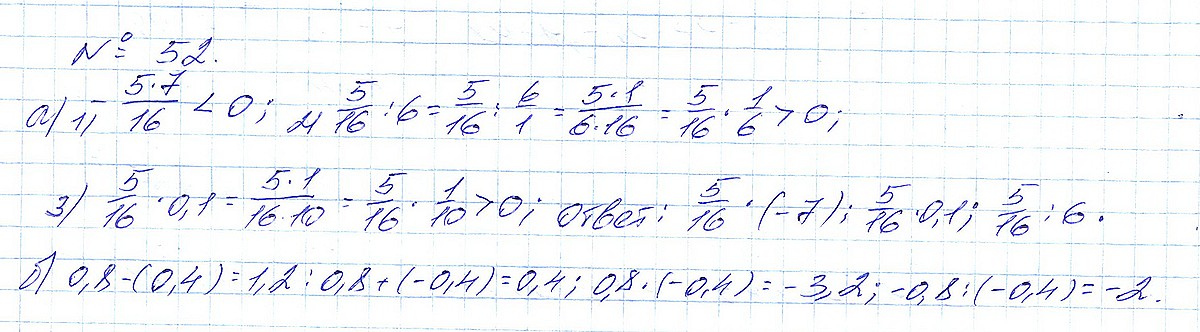 № 52.
а) 1) - 5·7/16 < 0; 2) 5/16 : 6 = 5/16 : 6/1 = 5·1/6·16 = 5/16 · 1/6 > 0;
3) 5/16 · 0,1 = 5·1/16·10 = 5/16 · 1/10 > 0; ответ: 5/16 · (-7); 5/16 · 0,1; 5/16 : 6.
б) 0,8 - (0,4) = 1,2 : 0,8 + (-0,4) = 0,4; 0,8 · (-0,4) = -3,2; -0,8 : (-0,4) = -2.